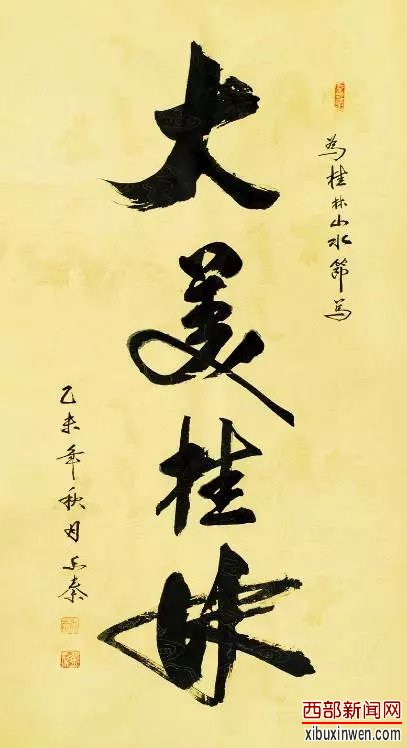 为桂林山水节写
大美桂林
乙未年秋月
西部新闻网
xibuxinwen.com